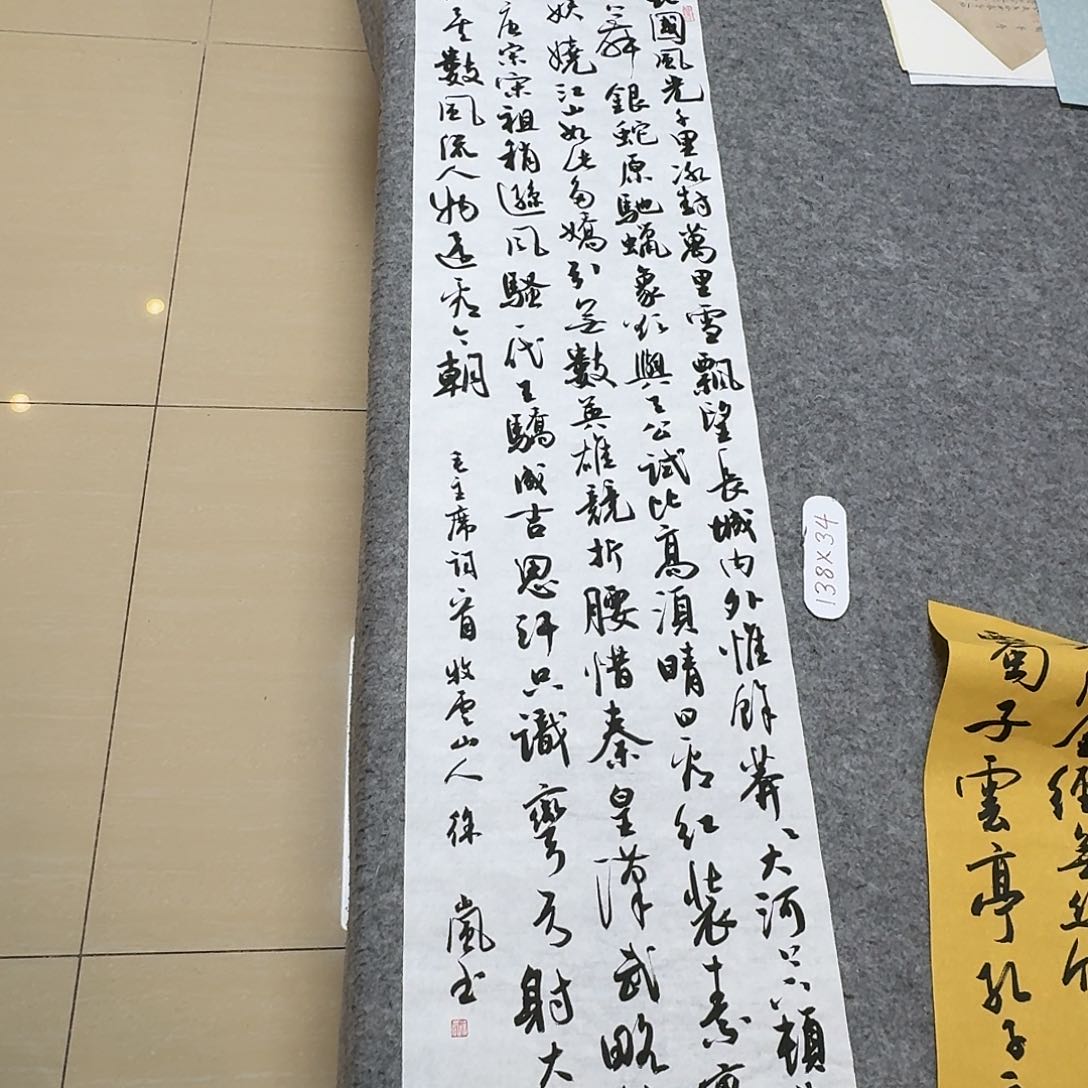 國風光千里冰封萬里雪飄望長城內外惟餘莽〻大河上下頓
舞銀蛇原馳蠟象欲與天公試比高須晴日看紅裝素裹
嬈江山如此多嬌引無數英雄競折腰惜秦皇漢武略
唐宗宋祖稍遜風騷一代天驕成吉思汗只識彎弓射大
數風流人物還看今朝
毛主席詞一首牧雲山人徐嵐書
138×34
蜀子雲亭孔子